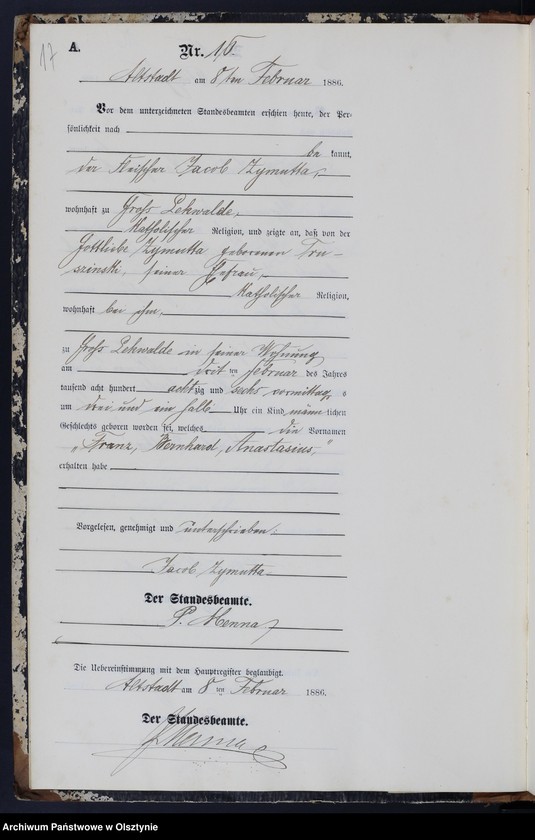 17
A.
Nr. 18.
Altstadt am 8ten Februar 1886.
Vor dem unterzeichneten Standesbeamten erschien heute, der Per-
sönlichkeit nach
be kannt,
der Fleischer Jacob Zymutta,
wohnhaft zu Groß Lehwalde,
katholischer Religion, und zeigte an, daß von der
Gottliebe Zymutta geborenen Tru-
szinski, seiner Ehefrau,
katholischer Religion,
wohnhaft bei ihm,
zu Groß Lehwalde in seiner Wohnung
am ten Februar des Jahres
tausend acht hundert achtzig und sechs vormittags
um drei und ein halb Uhr ein Kind männlichen
Geschlechts geboren worden sei, welches die Vornamen
„Franz, Bernhard, Anastasius,"
erhalten habe
Vorgelesen, genehmigt und unterschrieben:
Jacob Zymutta
Der Standesbeamte.
P. Menna
Die Uebereinstimmung mit dem Hauptregister beglaubigt.
Altstadt am 8ten Februar 1886.
Der Standesbeamte.
P. Menna
Archiwum Państwowe w Olsztynie